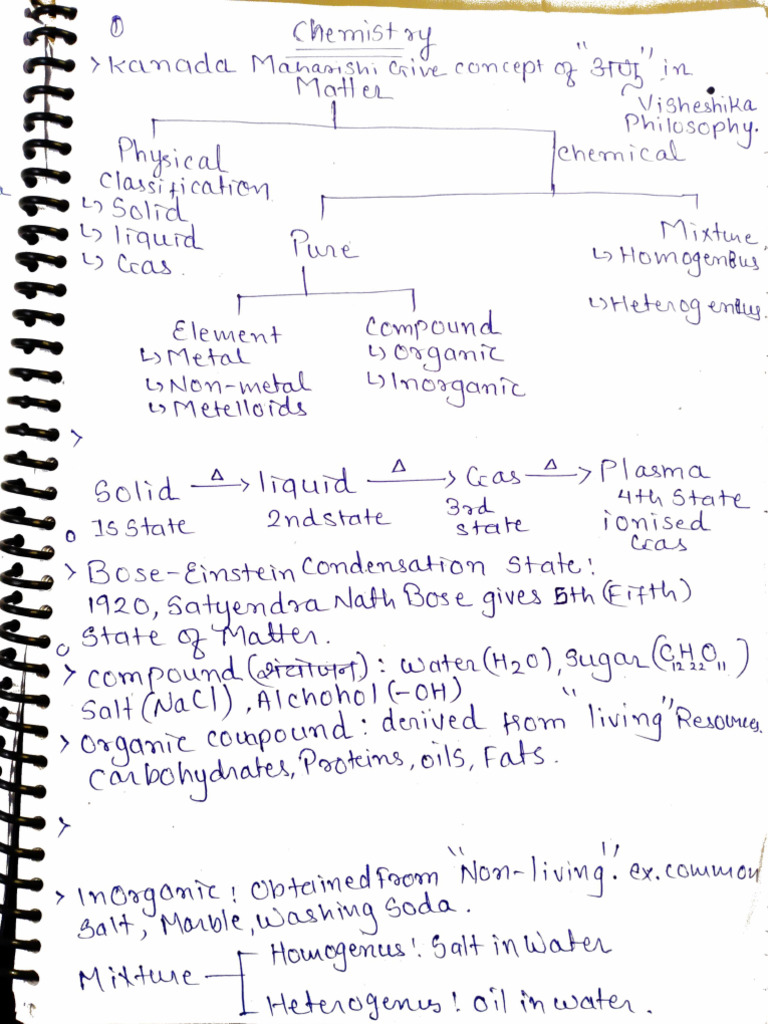 ①
Chemistry
> Kanada Maharishi Give concept of "अणु" in
Visheshika
Philosophy.
Matter
Physical
Classification
↳ Solid
↳ liquid
↳ Gas.
chemical
Pure
Mixture
↳ Homogenous
↳ Heterogenous.
Element
↳ Metal
↳ Non-metal
↳ Metelloids
Compound
↳ Organic
↳ Inorganic
>
Solid —Δ→ liquid —Δ→ Gas —Δ→ Plasma
1S State 2nd state 3rd state 4th State
ionised
Gas
> Bose-Einstein Condensation State:
1920, Satyendra Nath Bose gives 5th (Fifth)
State of Matter.
> Compound (संयोजन): Water (H2O), Sugar (C12H22O11)
Salt (NaCl), Alchohol (-OH)
> Organic compound: derived from "living" Resources.
Carbohydrates, Proteins, oils, Fats.
>
> Inorganic: Obtained from "Non-living". ex. common
Salt, Marble, Washing Soda.
Mixture
Homogenus: Salt in Water
Heterogenus: Oil in water.